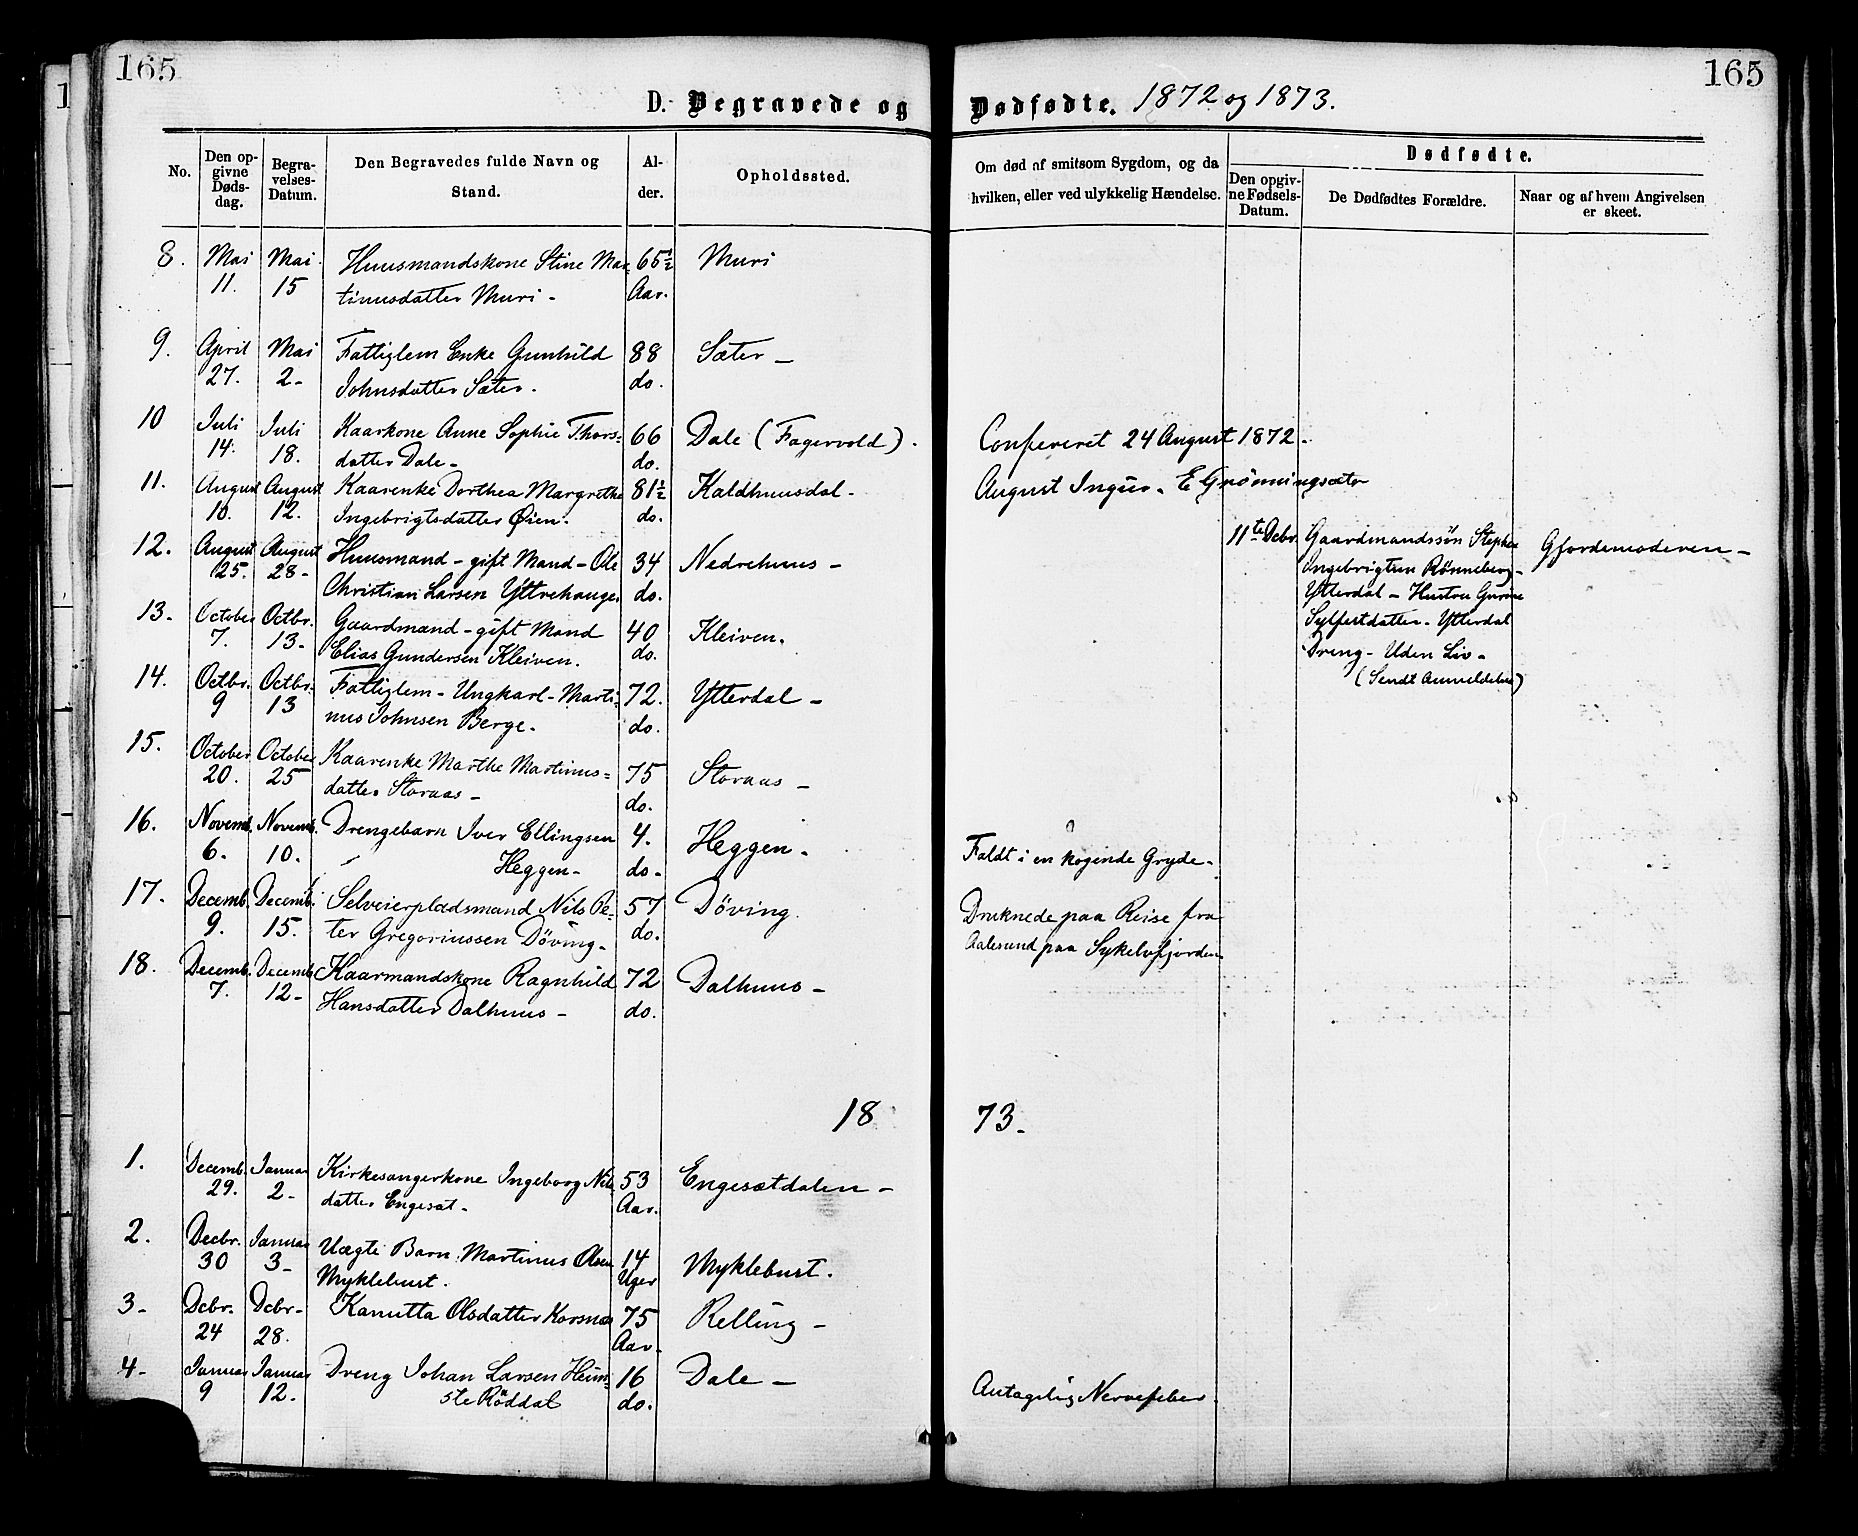 165
165
D. Begravede og Dødfødte. 1872 og 1873.
No.
Den op-
givne
Døds-
dag.
Begra-
velses-
Datum.
Den Begravedes fulde Navn og
Stand.
Al-
der.
Opholdssted.
Om død af smitsom Sygdom, og da
hvilken, eller ved ulykkelig Hændelse.
Dødfødte.
Den opgiv-
ne Fødsels-
Datum.
De Dødfødtes Forældre.
Naar og af hvem Angivelsen
er skeet.
8. Mai Mai Huusmandskone Stine Mar 65½ Muri
11. 15 tinusdatter Muri - Aar.
9. April Mai Fattiglem Enke Gunhild 88 Sæter -
27. 2- Johnsdatter Sæter. do.
10 Juli Juli Kaarkone Anne Sophie Thors= 66 Dale (Fagervold). Confereret 24 August 1872.
14. 18. datter Dale - do.
11. August August Kaarenke Dorthea Margrethe 81½ Kaldhuusdal. August
10. 12. Ingebrigtsdatter Øien. do.
12. August August Huusmand - gift Mand - Ole 34 Nedrehuus -
25. 28- Christian Larsen Yttrehauge. do.
11te Dcbr. Gaardmandssøn Stephen Gjordemoderen -
Ingebrigtsen Rønneberg -
Ytterdal - Hustru Gurine
Sylfestdatter. Ytterdal
Dreng - Uden Liv -
(Sendt Anmeldelse)
13. October Octbr. Gaardmand - gift Mand 40 Kleiven.
7. 13- Elias Gundersen Kleiven. do.
14. Octbr. Octbr. Fattiglem - Ungkarl - Marti= 72. Ytterdal -
9 13 nus Johnsen Berge. do.
15. October October Kaarenke Marthe Martinus= 75 Storaas -
20. 25 datter Storaas - do.
16. Novemb. Novemb. Drengebarn Iver Ellingsen 4. Heggen. Faldt i en kogende Gryde.
6. 10. Heggen - do-
17. Decemb. Decemb. Selveierpladsmand Nils Pe- 57 Döving. Druknede paa Reise fra
9. 15. ter Gregoriussen Döving - do. Aalesund paa Sykelvfjorden.
18. Decemb. Decemb. Kaarmandskone Ragnhild 72 Dalhuus -
7. 12- Hansdatter Dalhuus - do.
18 73.
1. Decemb. Januar Kirkesangerkone Ingeborg Nils 53 Engesætdalen -
29. 2- datter Engesæt. Aar.
2. Decbr. Januar Uægte Barn Martinus Olsen 14 Myklebust.
30 3- Myklebust. Uger
3- Dcbr. Dcbr- Kanutta Olsdatter Korsnæs 75 Relling -
24 28. Aar.
4- Januar Januar Dreng Johan Larsen Heim= 16 Dale - Antagelig Nervefeber.
9 12. ste Röddal do.